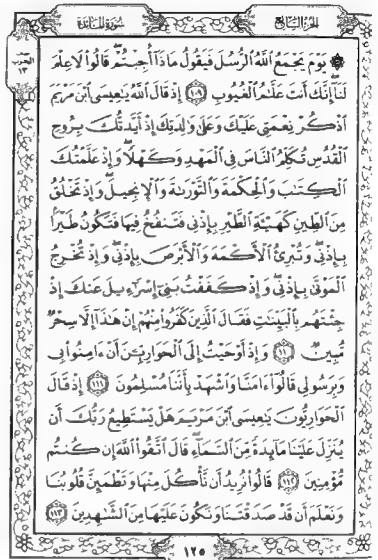 الجزء السابع
سورة المائدة
الحزب
١٣
يَوْمَ يَجْمَعُ ٱللَّهُ ٱلرُّسُلَ فَيَقُولُ مَاذَآ أُجِبْتُمْ ۖ قَالُوا۟ لَا عِلْمَ
لَنَآ ۖ إِنَّكَ أَنتَ عَلَّٰمُ ٱلْغُيُوبِ ١٠٩ إِذْ قَالَ ٱللَّهُ يَٰعِيسَى ٱبْنَ مَرْيَمَ
ٱذْكُرْ نِعْمَتِى عَلَيْكَ وَعَلَىٰ وَٰلِدَتِكَ إِذْ أَيَّدتُّكَ بِرُوحِ
ٱلْقُدُسِ تُكَلِّمُ ٱلنَّاسَ فِى ٱلْمَهْدِ وَكَهْلًا ۖ وَإِذْ عَلَّمْتُكَ
ٱلْكِتَٰبَ وَٱلْحِكْمَةَ وَٱلتَّوْرَىٰةَ وَٱلْإِنجِيلَ ۖ وَإِذْ تَخْلُقُ
مِنَ ٱلطِّينِ كَهَيْـَٔةِ ٱلطَّيْرِ بِإِذْنِى فَتَنفُخُ فِيهَا فَتَكُونُ طَيْرًۢا
بِإِذْنِى ۖ وَتُبْرِئُ ٱلْأَكْمَهَ وَٱلْأَبْرَصَ بِإِذْنِى ۖ وَإِذْ تُخْرِجُ
ٱلْمَوْتَىٰ بِإِذْنِى ۖ وَإِذْ كَفَفْتُ بَنِىٓ إِسْرَٰٓءِيلَ عَنكَ إِذْ
جِئْتَهُم بِٱلْبَيِّنَٰتِ فَقَالَ ٱلَّذِينَ كَفَرُوا۟ مِنْهُمْ إِنْ هَٰذَآ إِلَّا سِحْرٌ
مُّبِينٌ ١١٠ وَإِذْ أَوْحَيْتُ إِلَى ٱلْحَوَارِيِّـۧنَ أَنْ ءَامِنُوا۟ بِى
وَبِرَسُولِى قَالُوٓا۟ ءَامَنَّا وَٱشْهَدْ بِأَنَّنَا مُسْلِمُونَ ١١١ إِذْ قَالَ
ٱلْحَوَارِيُّونَ يَٰعِيسَى ٱبْنَ مَرْيَمَ هَلْ يَسْتَطِيعُ رَبُّكَ أَن
يُنَزِّلَ عَلَيْنَا مَآئِدَةً مِّنَ ٱلسَّمَآءِ ۖ قَالَ ٱتَّقُوا۟ ٱللَّهَ إِن كُنتُم
مُّؤْمِنِينَ ١١٢ قَالُوا۟ نُرِيدُ أَن نَّأْكُلَ مِنْهَا وَتَطْمَئِنَّ قُلُوبُنَا
وَنَعْلَمَ أَن قَدْ صَدَقْتَنَا وَنَكُونَ عَلَيْهَا مِنَ ٱلشَّٰهِدِينَ ١١٣
١٢٥